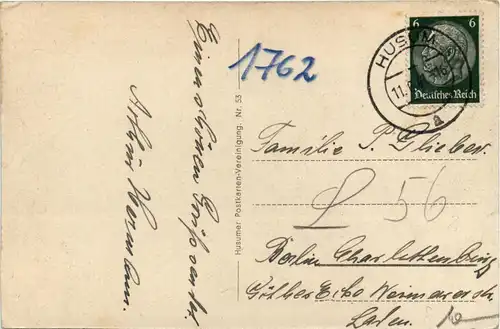 Einen schönen Gruß sendet
Arthur
1762
Husumer Postkarten-Vereinigung. Nr. 53
HUSUM
11.
a
6 6
Deutsches Reich
Familie P. Glieber.
56
Berlin Charlottenburg
Ecke Weimarer str
Laden.